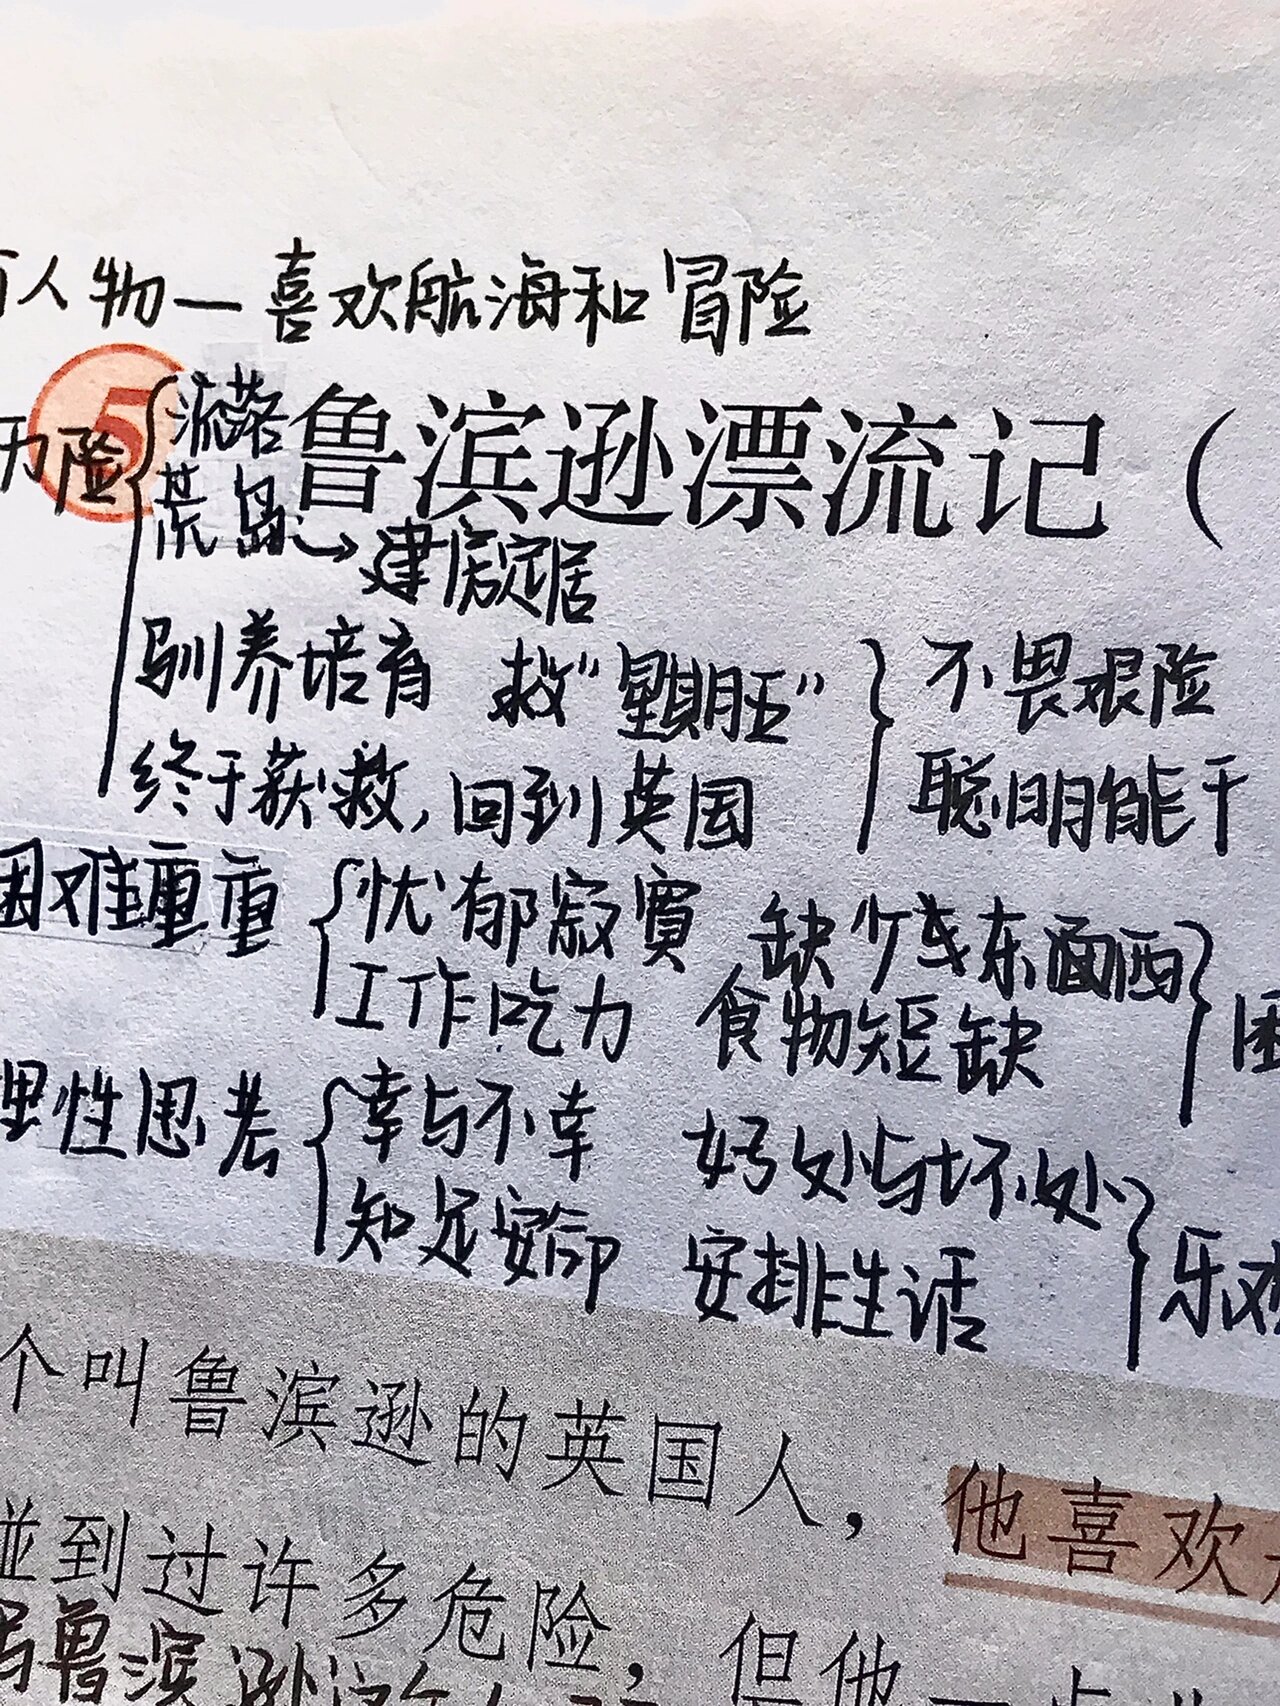 人物—喜欢航海和冒险
5 鲁滨逊漂流记（
历险 流落
荒岛→建房定居
驯养培育 救“星期五” 不畏艰险
终于获救,回到英国 聪明能干
困难重重 忧郁寂寞 缺少东西
工作吃力 食物短缺 困
理性思考 幸与不幸 好处与坏处
知足安命 安排生活 乐观
个叫鲁滨逊的英国人，他喜欢
碰到过许多危险，但他一点
鲁滨逊